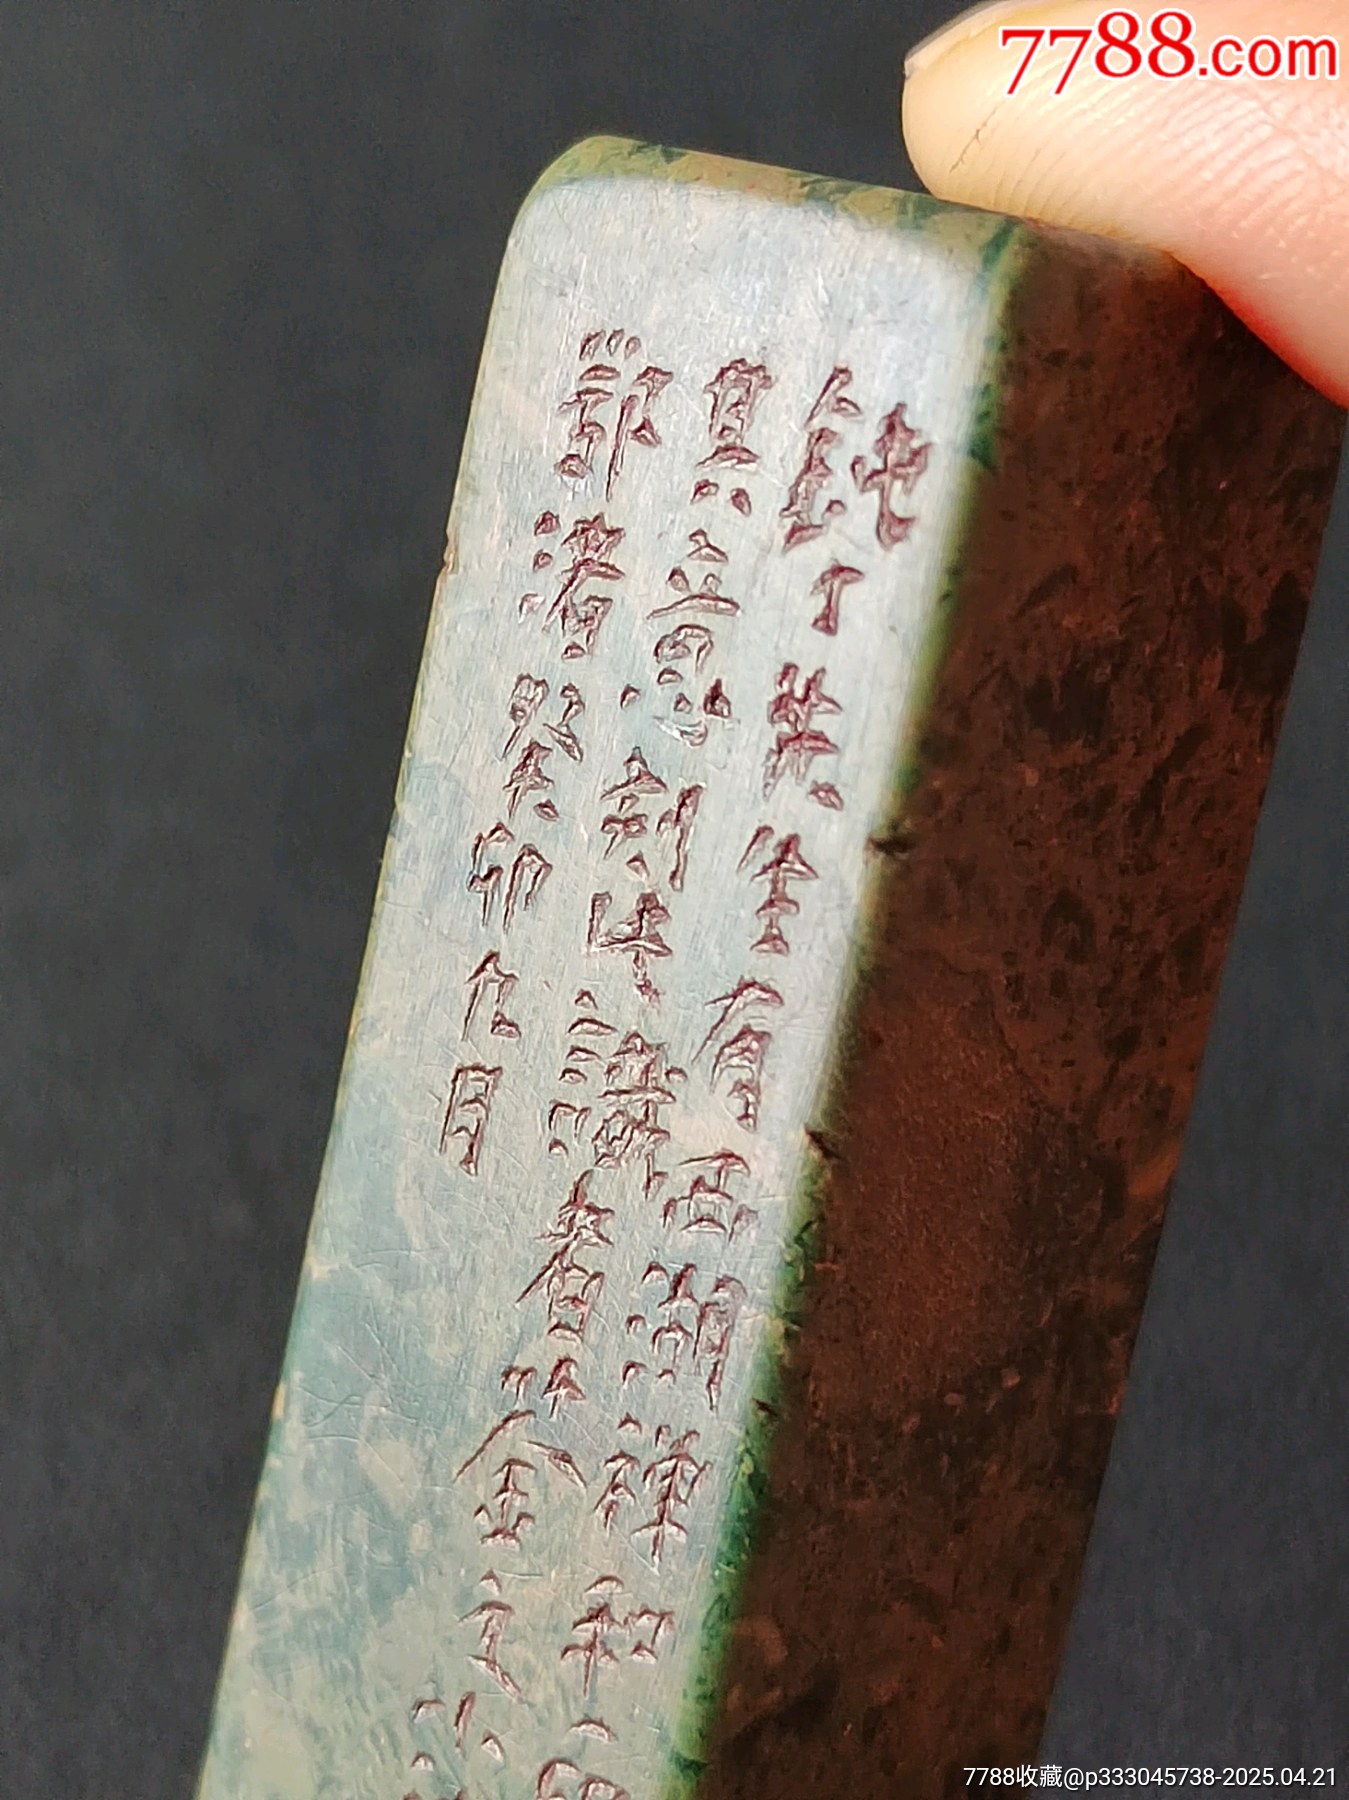 7788.com
鈍丁有西湖禪和印
其意刻者金文
鄂渚癸卯九月
7788收藏@p333045738-2025.04.21